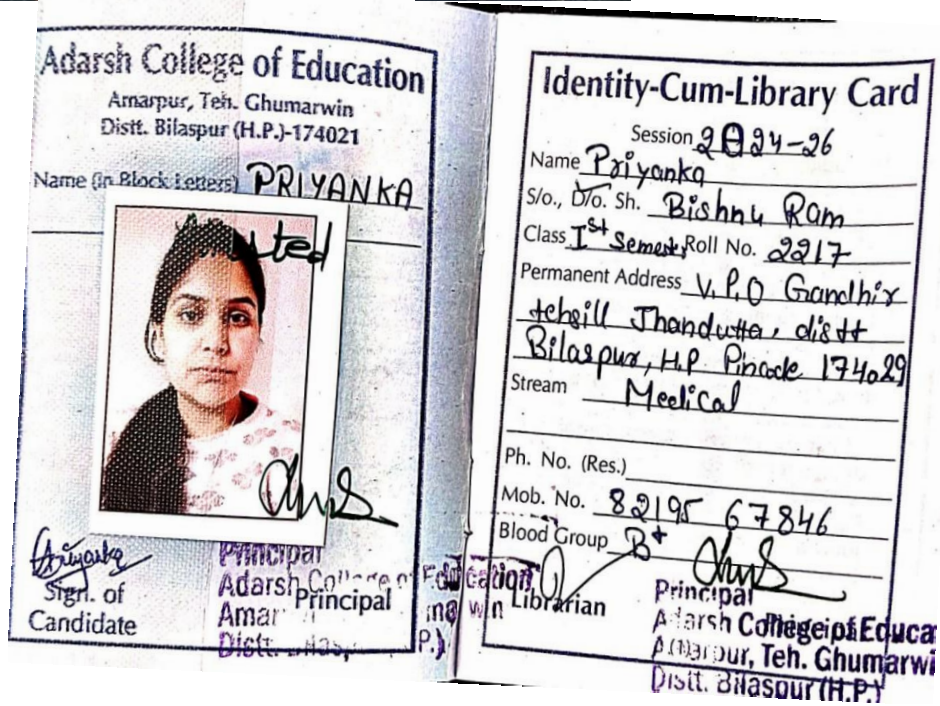 Adarsh College of Education
Amarpur, Teh. Ghumarwin
Distt. Bilaspur (H.P.)-174021
Name (in Block Letters) PRIYANKA
Attested
Priyanka
Sign. of
Candidate
Principal
Adarsh College of Education
Principal
Identity-Cum-Library Card
Session 2024-26
Name Priyanka
S/o., D/o. Sh. Bishnu Ram
Class Ist Semester Roll No. 2217
Permanent Address V.P.O Gandhir
tehsill Jhandutta, distt
Bilaspur, H.P. Pincode 174029
Stream Medical
Ph. No. (Res.)
Mob. No. 82195 67846
Blood Group B+
Librarian
Principal
Principal
Adarsh College of Educa
Amarpur, Teh. Ghumarwi
Distt. Bilaspur (H.P.)